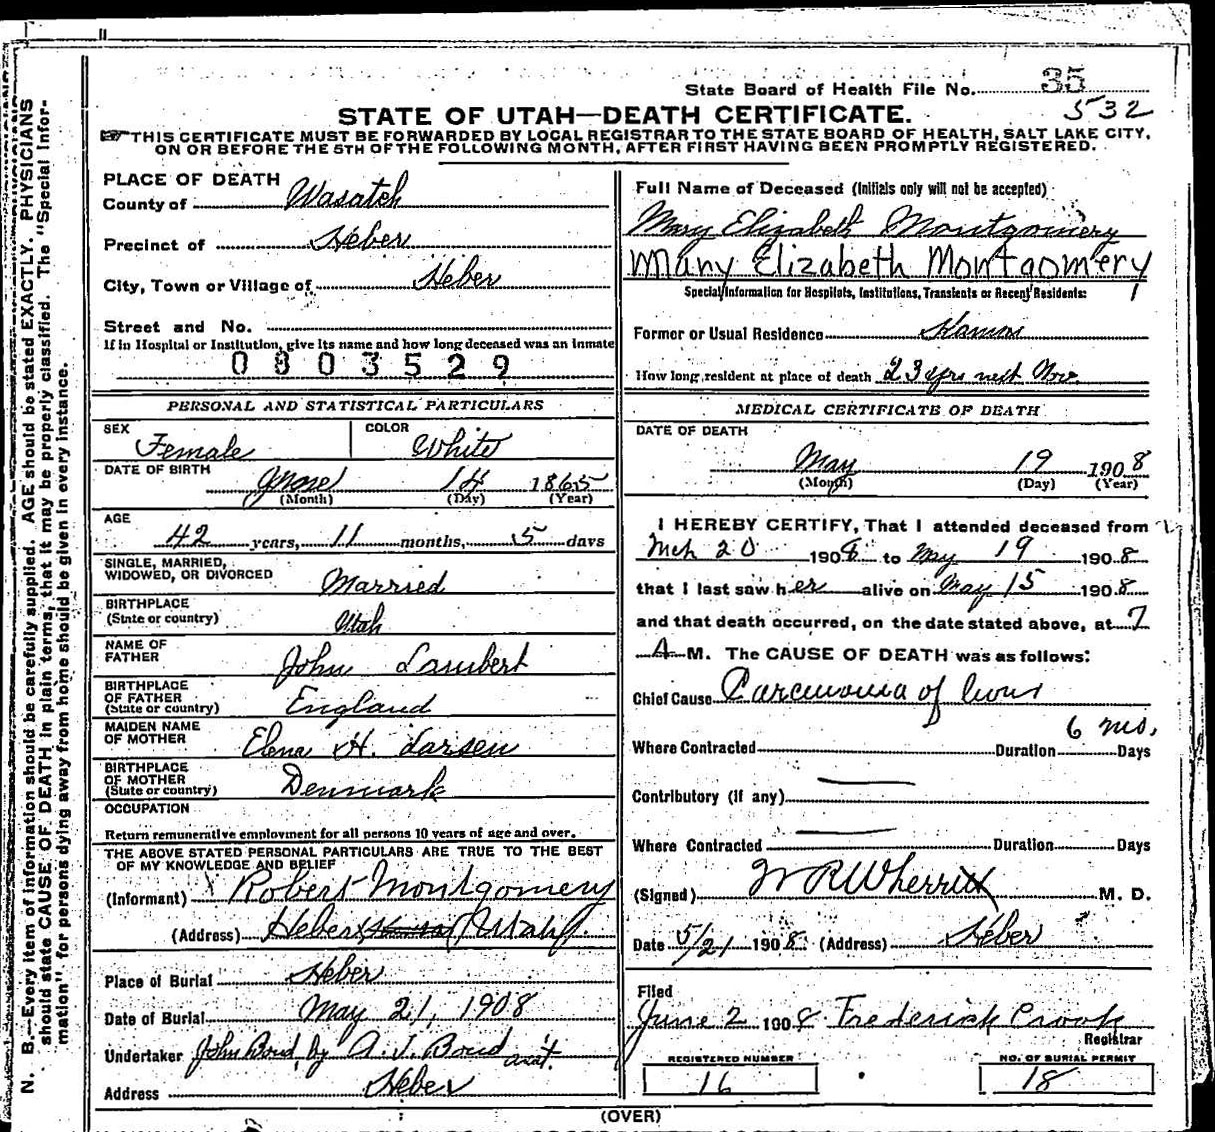 State Board of Health File No. 35
532
STATE OF UTAH—DEATH CERTIFICATE.
THIS CERTIFICATE MUST BE FORWARDED BY LOCAL REGISTRAR TO THE STATE BOARD OF HEALTH, SALT LAKE CITY,
ON OR BEFORE THE 5TH OF THE FOLLOWING MONTH, AFTER FIRST HAVING BEEN PROMPTLY REGISTERED.
N. B.—Every item of information should be carefully supplied. AGE should be stated EXACTLY. PHYSICIANS
should state CAUSE OF DEATH in plain terms, that it may be properly classified. The "Special Infor-
mation" for persons dying away from home should be given in every instance.
PLACE OF DEATH
County of Wasatch
Precinct of Heber
City, Town or Village of Heber
Street and No.
If in Hospital or Institution, give its name and how long deceased was an inmate
0803529
PERSONAL AND STATISTICAL PARTICULARS
SEX Female COLOR White
DATE OF BIRTH 14 1865
(Month) (Day) (Year)
AGE
42 years, 11 months, 5 days
SINGLE, MARRIED,
WIDOWED, OR DIVORCED Married
BIRTHPLACE
(State or country) Utah
NAME OF
FATHER John Lambert
BIRTHPLACE
OF FATHER
(State or country) England
MAIDEN NAME
OF MOTHER Elena H. Larsen
BIRTHPLACE
OF MOTHER
(State or country) Denmark
OCCUPATION
Return remunerative employment for all persons 10 years of age and over.
THE ABOVE STATED PERSONAL PARTICULARS ARE TRUE TO THE BEST
OF MY KNOWLEDGE AND BELIEF
(Informant) Robert Montgomery
(Address) Heber Utah
Place of Burial Heber
Date of Burial May 21, 1908
Undertaker John Bond by A. J. Bond asst.
Address Heber
Full Name of Deceased (Initials only will not be accepted)
Mary Elizabeth Montgomery
Mary Elizabeth Montgomery
Special Information for Hospitals, Institutions, Transients or Recent Residents:
Former or Usual Residence
How long resident at place of death 23 yrs next Nov.
MEDICAL CERTIFICATE OF DEATH
DATE OF DEATH
May 19 1908
(Month) (Day) (Year)
I HEREBY CERTIFY, That I attended deceased from
Mch 20 1908 to May 19 1908
that I last saw her alive on May 15 1908
and that death occurred, on the date stated above, at 7
A M. The CAUSE OF DEATH was as follows:
Chief Cause Carcinoma of
6 mos.
Where Contracted Duration Days
Contributory (if any)
Where Contracted Duration Days
(Signed) W R Wherritt M. D.
Date 5/21 1908 (Address) Heber
Filed
June 2 1908 Frederick Crook
Registrar
REGISTERED NUMBER
16
NO. OF BURIAL PERMIT
18
(OVER)